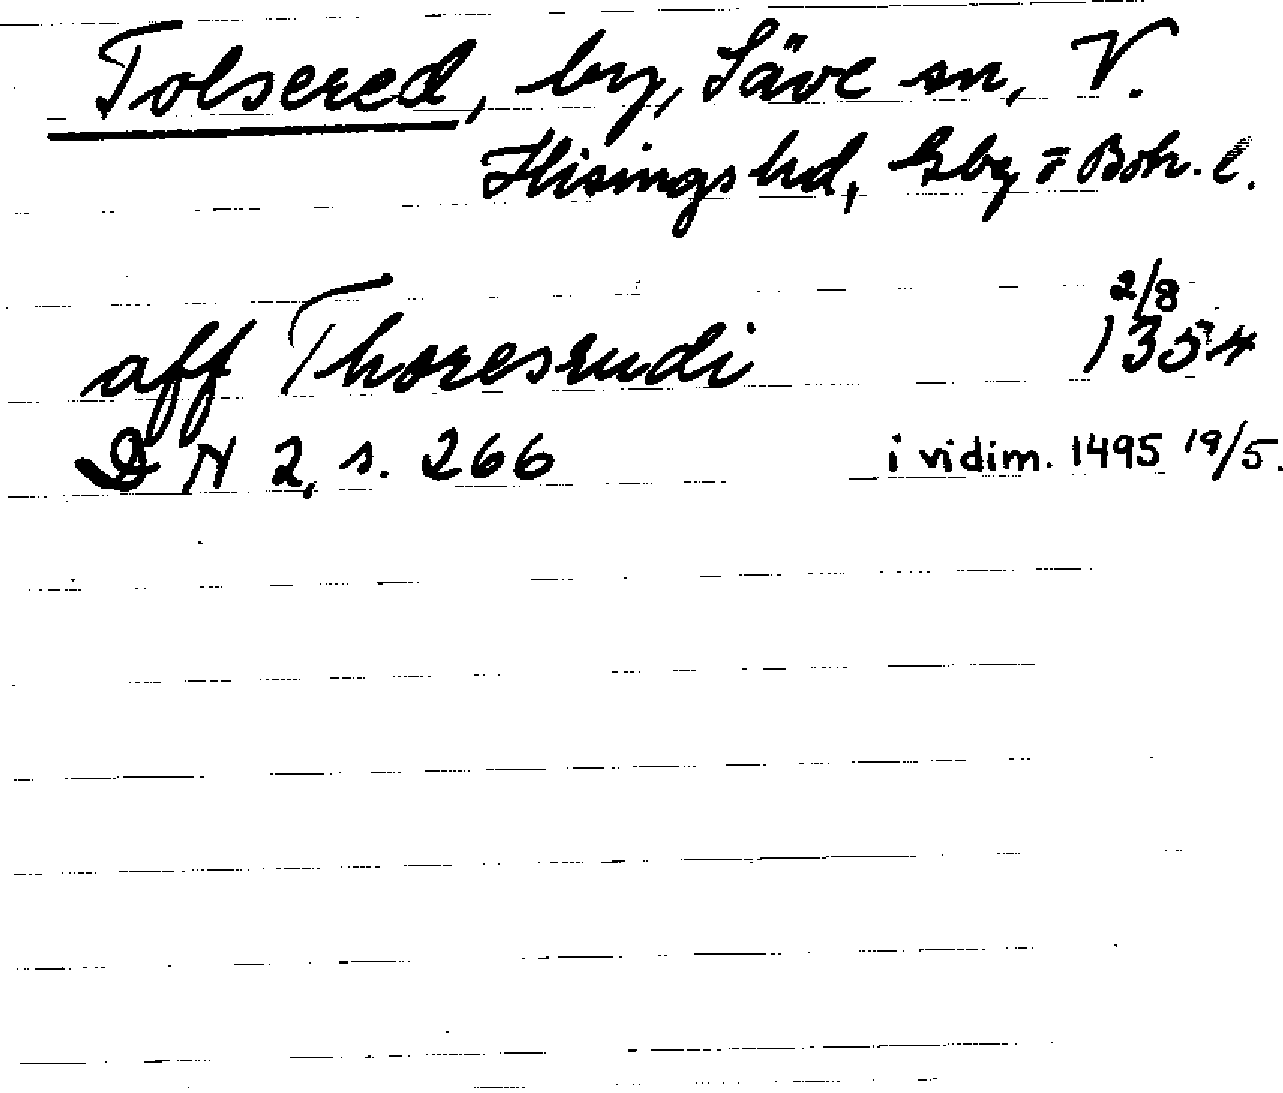 Tolsered, by, Säve sn, V.
Hisings hd, Gbg o Boh. l.
aff Thoresrudi 2/8 1354
DN 2, s. 266 i vidim. 1495 19/5.